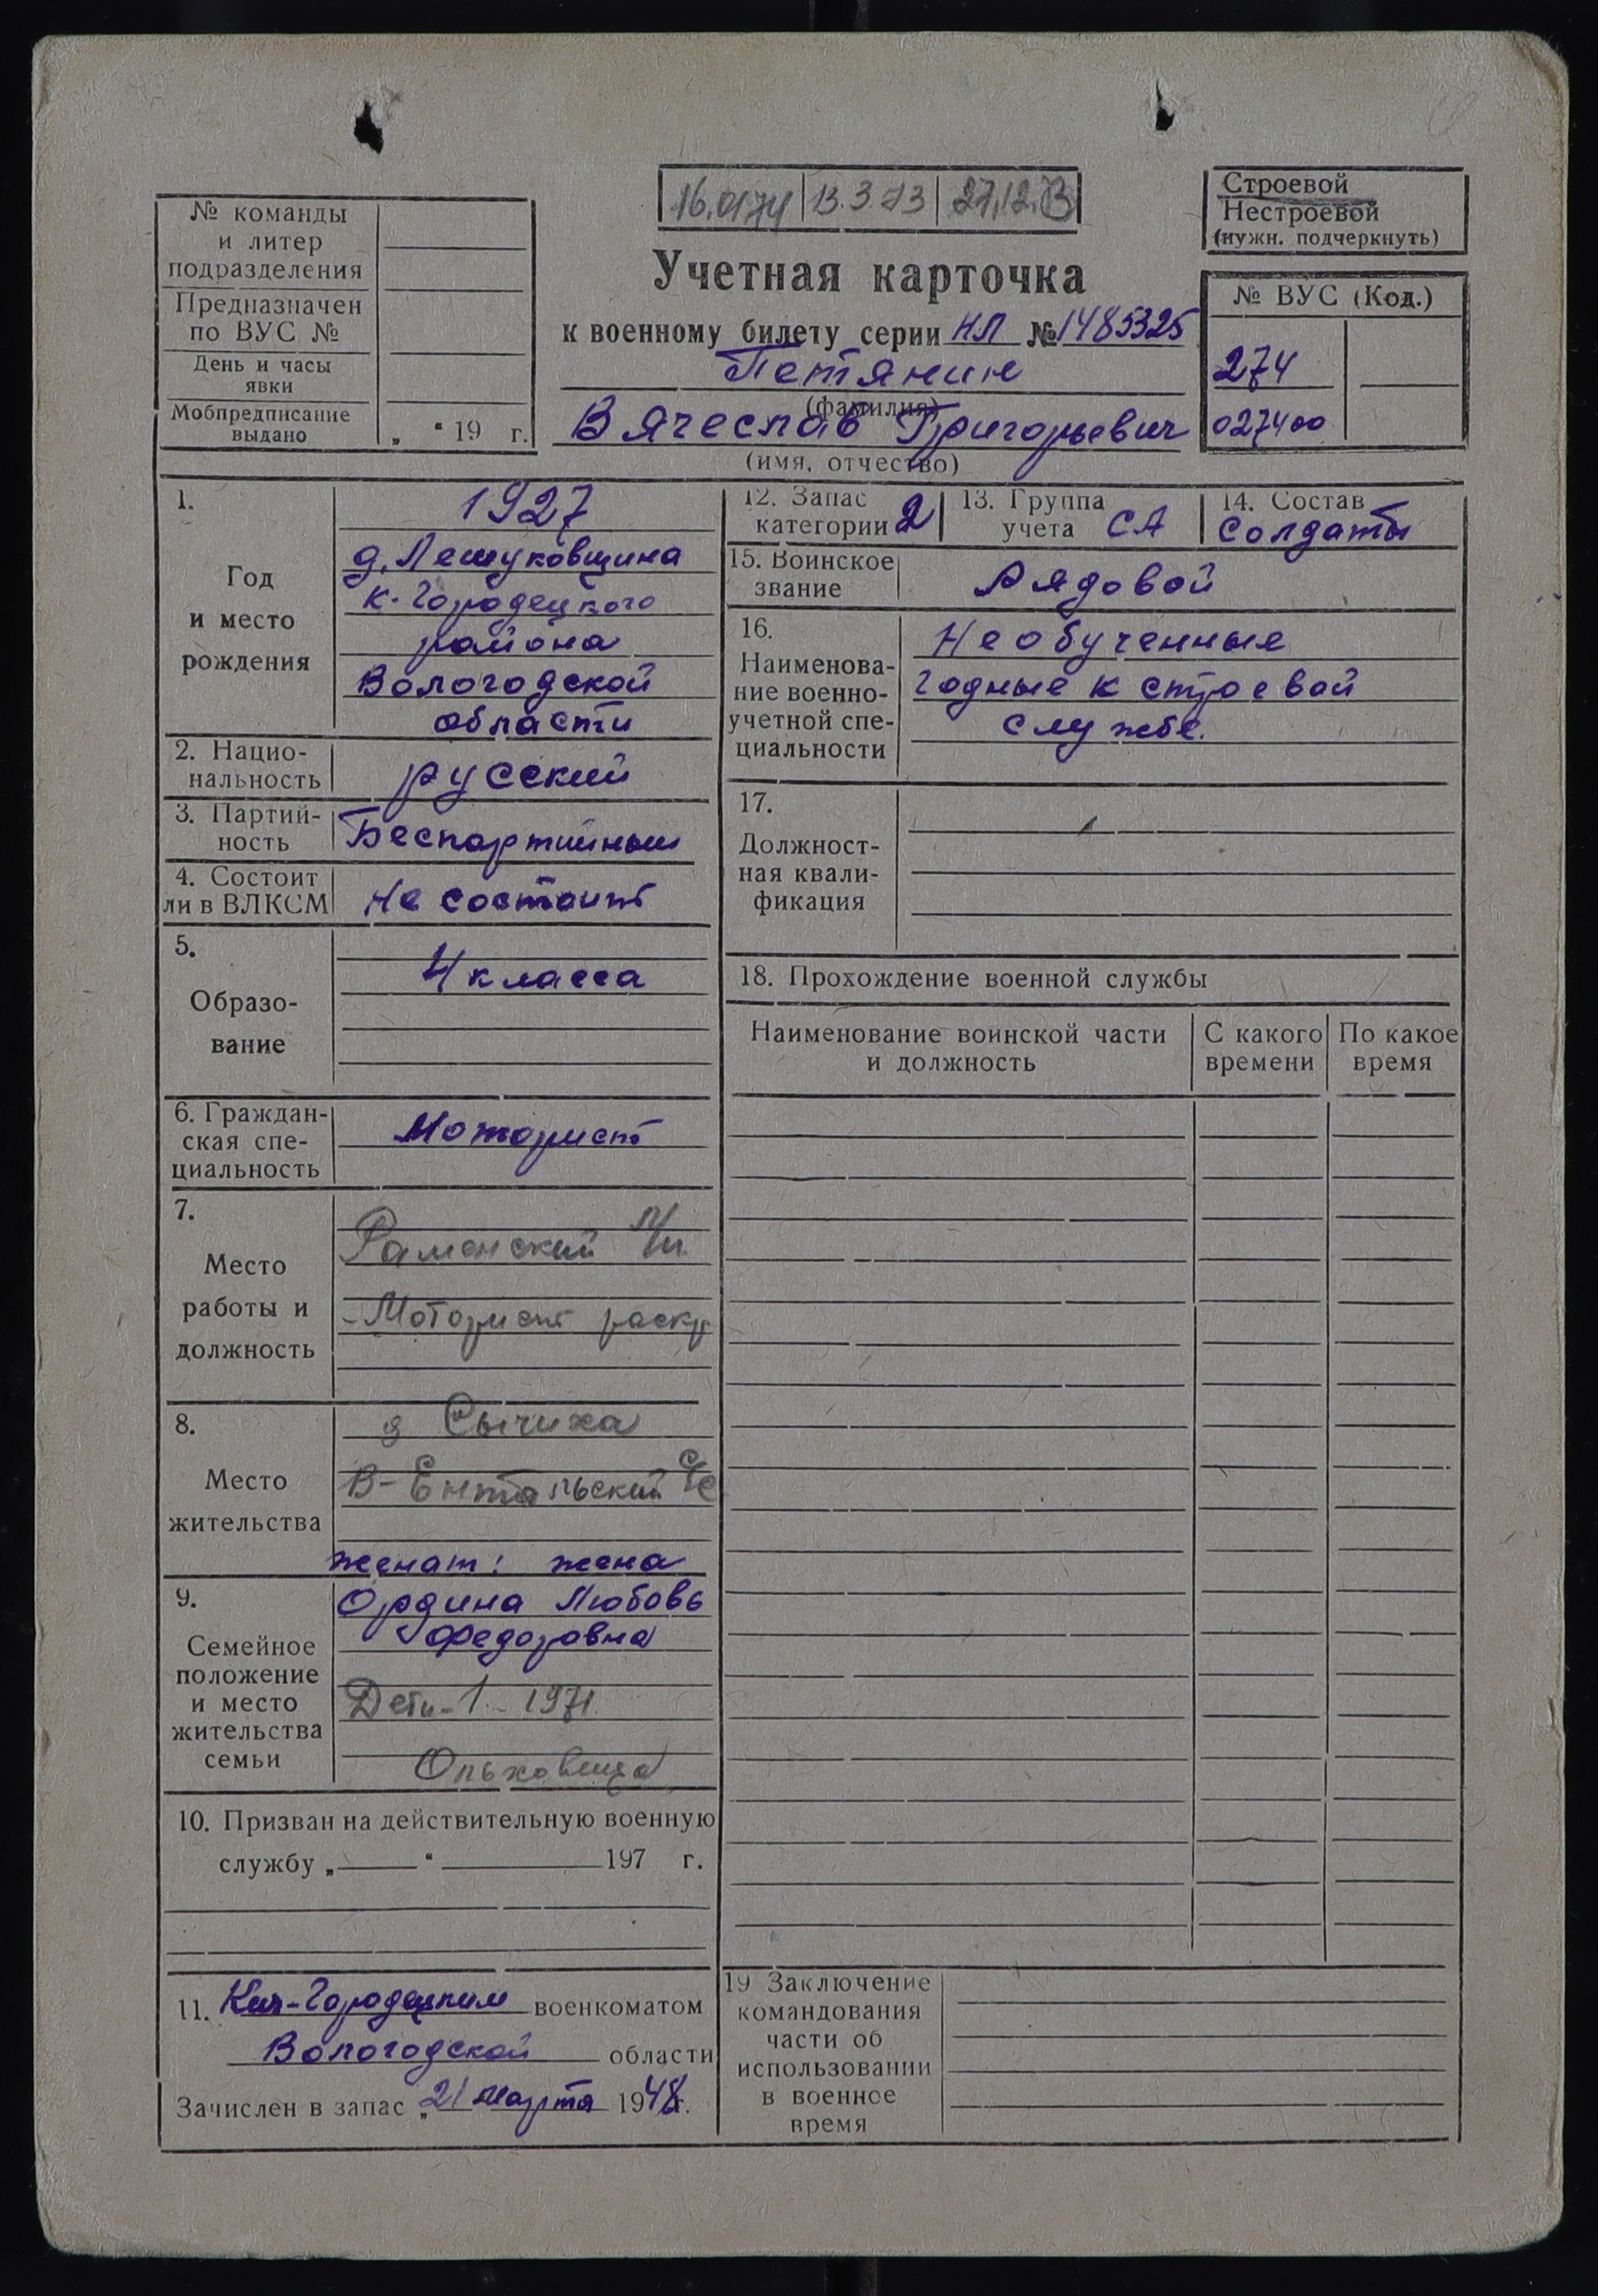 16.01.74 13.3.73 27.12.73
Строевой
Нестроевой
(нужн. подчеркнуть)
№ команды
и литер
подразделения
Предназначен
по ВУС №
День и часы
явки
Мобпредписание
выдано „ “ 19 г.
Учетная карточка
к военному билету серии НЛ № 1485325
Петянин
(фамилия)
Вячеслав Григорьевич
(имя, отчество)
№ ВУС (Код.)
274
027400
1.
Год
и место
рождения
1927
д. Лешуковщина
К-Городецкого
района
Вологодской
области
2. Нацио-
нальность
русский
3. Партий-
ность
Беспартийный
4. Состоит
ли в ВЛКСМ
Не состоит
5.
Образо-
вание
4 класса
6. Граждан-
ская спе-
циальность
Моторист
7.
Место
работы и
должность
Раменский л/п
- Моторист раскр
8.
Место
жительства
д Сычиха
В-Ентальский с/с
9.
Семейное
положение
и место
жительства
семьи
женат: жена
Ордина Любовь
Федоровна
Дети-1- 1971
10. Призван на действительную военную
службу „ “ 197 г.
11. Кич-Городецким военкоматом
Вологодской области
Зачислен в запас „21 марта 1948г.
12. Запас
категории 2
13. Группа
учета СА
14. Состав
солдаты
15. Воинское
звание
Рядовой
16.
Наименова-
ние военно-
учетной спе-
циальности
Необученные
годные к строевой
службе.
17.
Должност-
ная квали-
фикация
18. Прохождение военной службы
Наименование воинской части
и должность
С какого
времени
По какое
время
19 Заключение
командования
части об
использовании
в военное
время